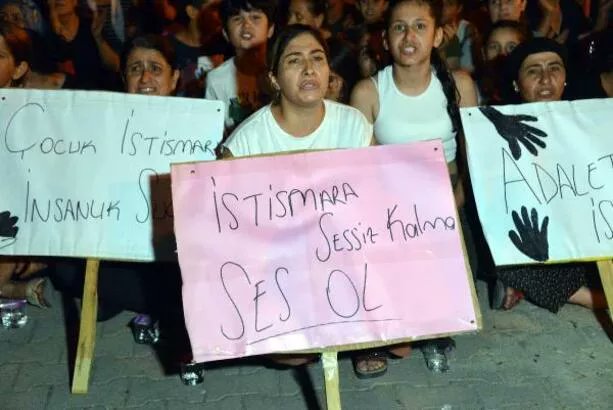 ÇOCUK İSTİSMARI
İNSANLIK
İSTİSMARA
SESSİZ KALMA
SES OL
ADALET